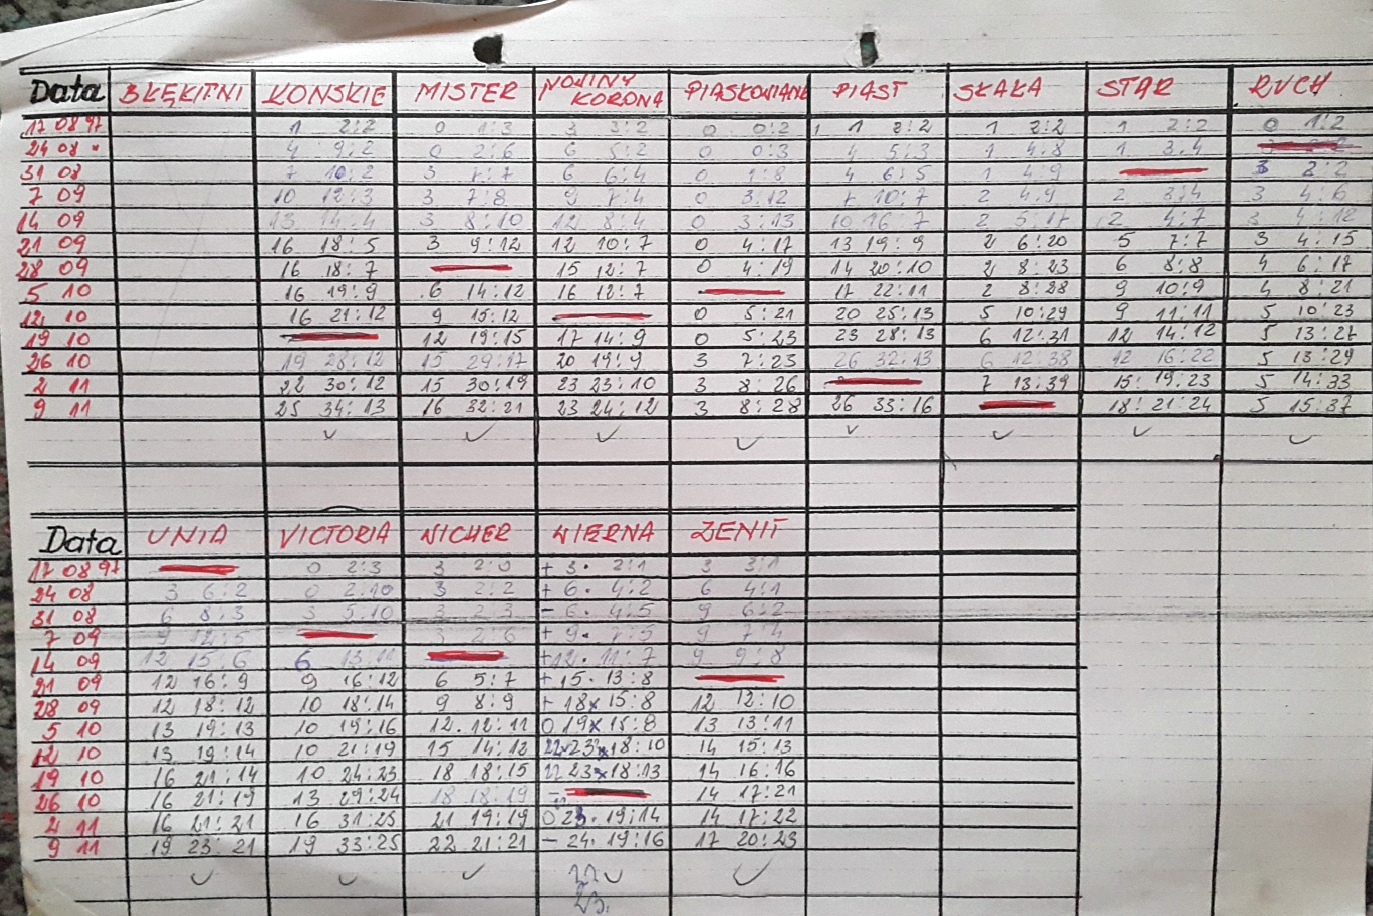 Data BŁĘKITNI KONSKIE MISTER NOWINY KORONA PIASKOWIANKA PIAST SKAŁA STAR RUCH
17 08 97 1 2:2 0 1:3 3 3:2 0 0:2 1 2:2 1 2:2 1 2:2 0 1:2
24 08 " 4 9:2 0 2:6 6 5:2 0 0:3 4 5:3 1 4:8 1 3:4
31 08 7 10:2 3 7:7 6 6:4 0 1:8 4 6:5 1 4:9 3 2:2
7 09 10 12:3 3 7:8 9 7:4 0 3:12 7 10:7 2 4:9 2 3:4 3 4:6
14 09 13 14:4 3 8:10 12 8:4 0 3:13 10 16:7 2 5:17 2 4:7 3 4:12
21 09 16 18:5 3 9:12 12 10:7 0 4:17 13 19:9 2 6:20 5 7:7 3 4:15
28 09 16 18:7 15 12:7 0 4:19 14 20:10 2 8:23 6 8:8 4 6:17
5 10 16 19:9 6 14:12 16 12:7 17 22:11 2 8:28 9 10:9 4 8:21
12 10 16 21:12 9 15:12 0 5:21 20 25:13 5 10:29 9 11:11 5 10:23
19 10 12 19:15 17 14:9 0 5:23 23 28:13 6 12:31 12 14:12 5 13:27
26 10 19 28:12 15 29:17 20 19:9 3 7:23 26 32:13 6 12:38 12 16:22 5 13:29
2 11 22 30:12 15 30:19 23 23:10 3 8:26 7 13:39 15 19:23 5 14:33
9 11 25 34:13 16 32:21 23 24:12 3 8:28 26 33:16 18 21:24 5 15:37
Data UNIA VICTORIA WICHER WIERNA ZENIT
17 08 97 0 2:3 3 2:0 + 3. 2:1 3 3:1
24 08 3 6:2 0 2:10 3 2:2 + 6. 4:2 6 4:1
31 08 6 8:3 3 5:10 3 2:3 - 6. 4:5 9 6:2
7 09 9 12:5 3 2:6 + 9. 7:5 9 7:4
14 09 12 15:6 6 + 12. 11:7 9 9:8
21 09 12 16:9 9 16:12 6 5:7 + 15. 13:8
28 09 12 18:12 10 18:14 9 8:9 + 18x 15:8 12 12:10
5 10 13 19:13 10 19:16 12. 12:11 0 19x 15:8 13 13:11
12 10 13 19:14 10 21:19 15 14:12 22x 23x 18:10 14 15:13
19 10 16 21:14 10 24:23 18 18:15 22 23x 18:13 14 16:16
26 10 16 21:19 13 29:24 18 18:19 - 14 17:21
2 11 16 21:21 16 31:25 21 19:19 0 23. 19:14 14 17:22
9 11 19 23:21 19 33:25 22 21:21 - 24. 19:16 17 20:23